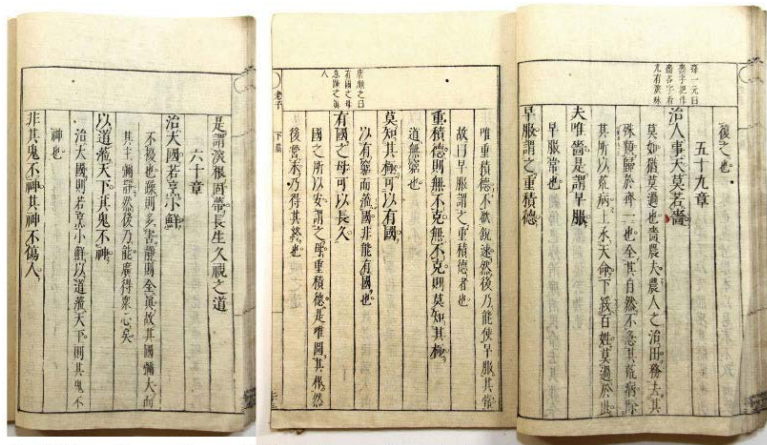 後之也
五十九章
治人事天莫若嗇
莫如猶莫過也嗇農夫農人之治田務去其
殊類歸於齊一也全其自然不急其荒病除
其所以荒病上承天命下綏百姓莫過於此
夫唯嗇是謂早服
早服常也
早服謂之重積德
唯重積德不欲銳速然後乃能使早服其常
故曰早服謂之重積德者也
重積德則無不克無不克則莫知其極
道無窮也
莫知其極可以有國
以有窮而莅國非能有國也
有國之母可以長久
國之所以安謂之母重積德是唯圖其根然
後營末乃得其終也
老子 下篇
是謂深根固蔕長生久視之道
六十章
治大國若亨小鮮
不擾也躁則多害靜則全眞故其國彌大而
其主彌靜然後乃能廣得衆心矣
以道莅天下其鬼不神
治大國則若亨小鮮以道莅天下則其鬼不
神也
非其鬼不神其神不傷人